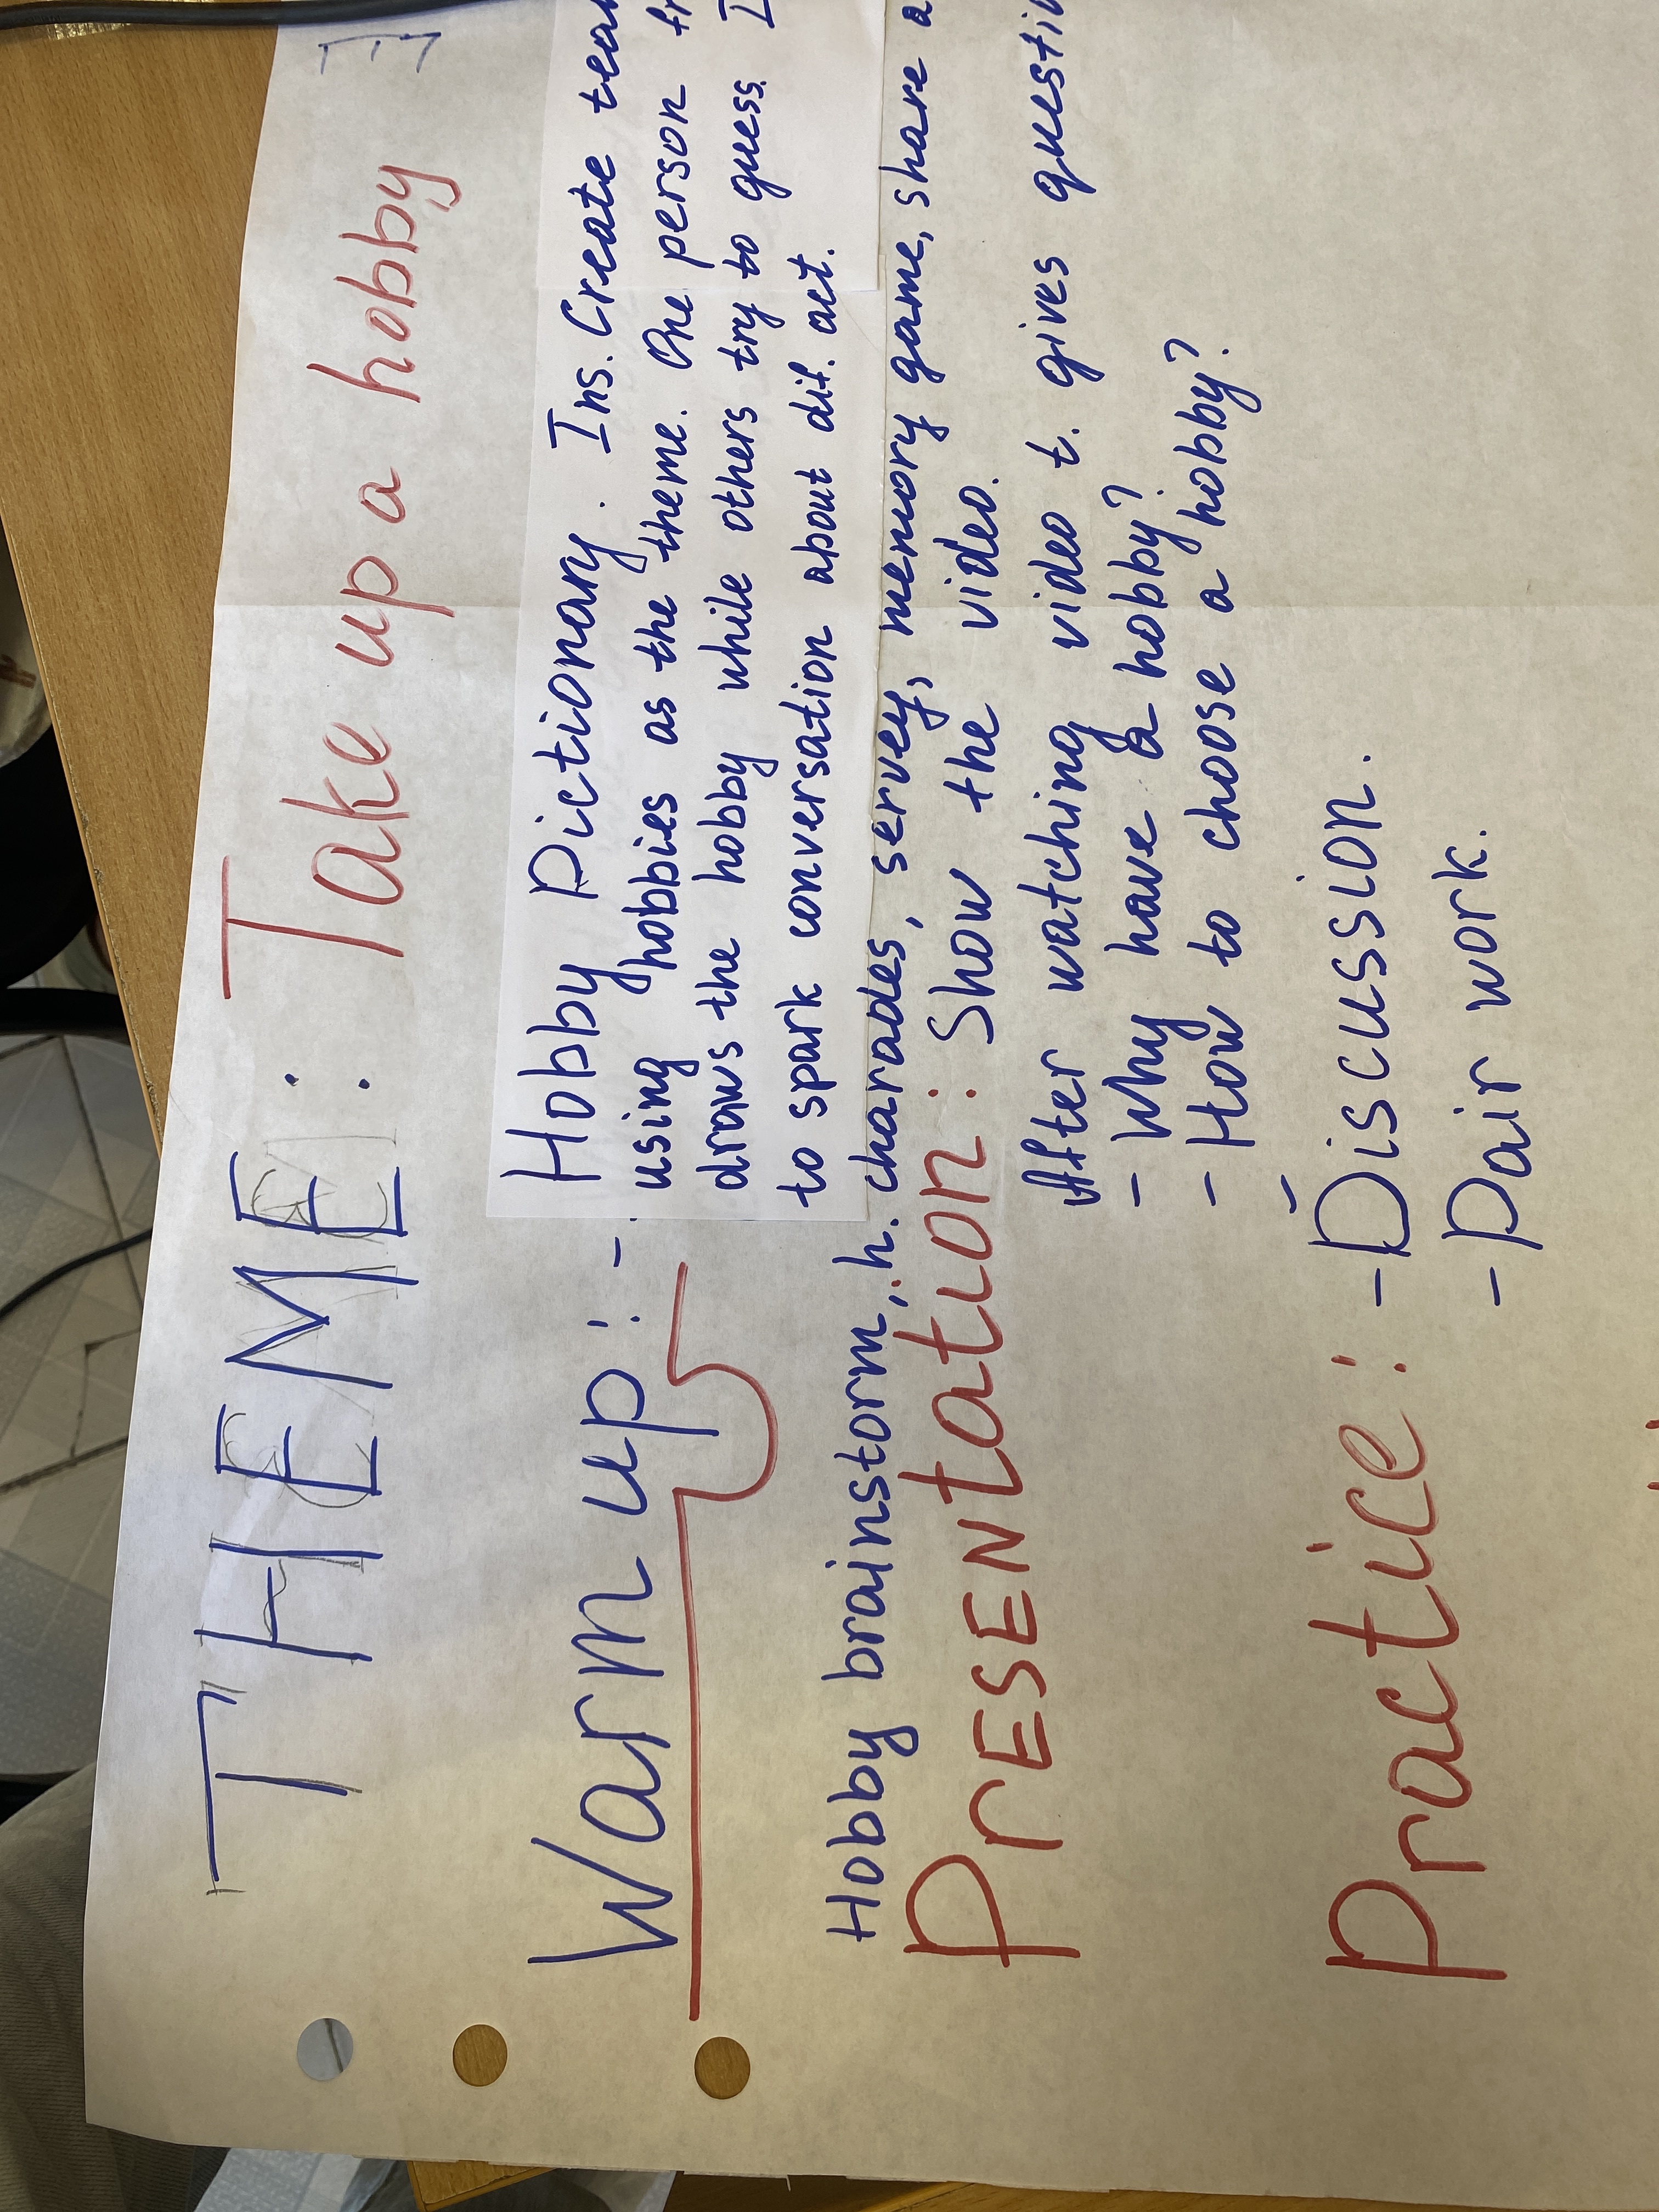 THEME: Take up a hobby
Warm up: - Hobby Pictionary. Ins. Create
using hobbies as the theme. One person
draws the hobby while others try to guess.
to spark conversation about dif. act.
Hobby brainstorm, h. charades, servey, memory game, share a
PRESENtation: Show the video.
After watching video t. gives
- Why have a hobby?
- How to choose a hobby?
Practice: - Discussion.
- Pair work.